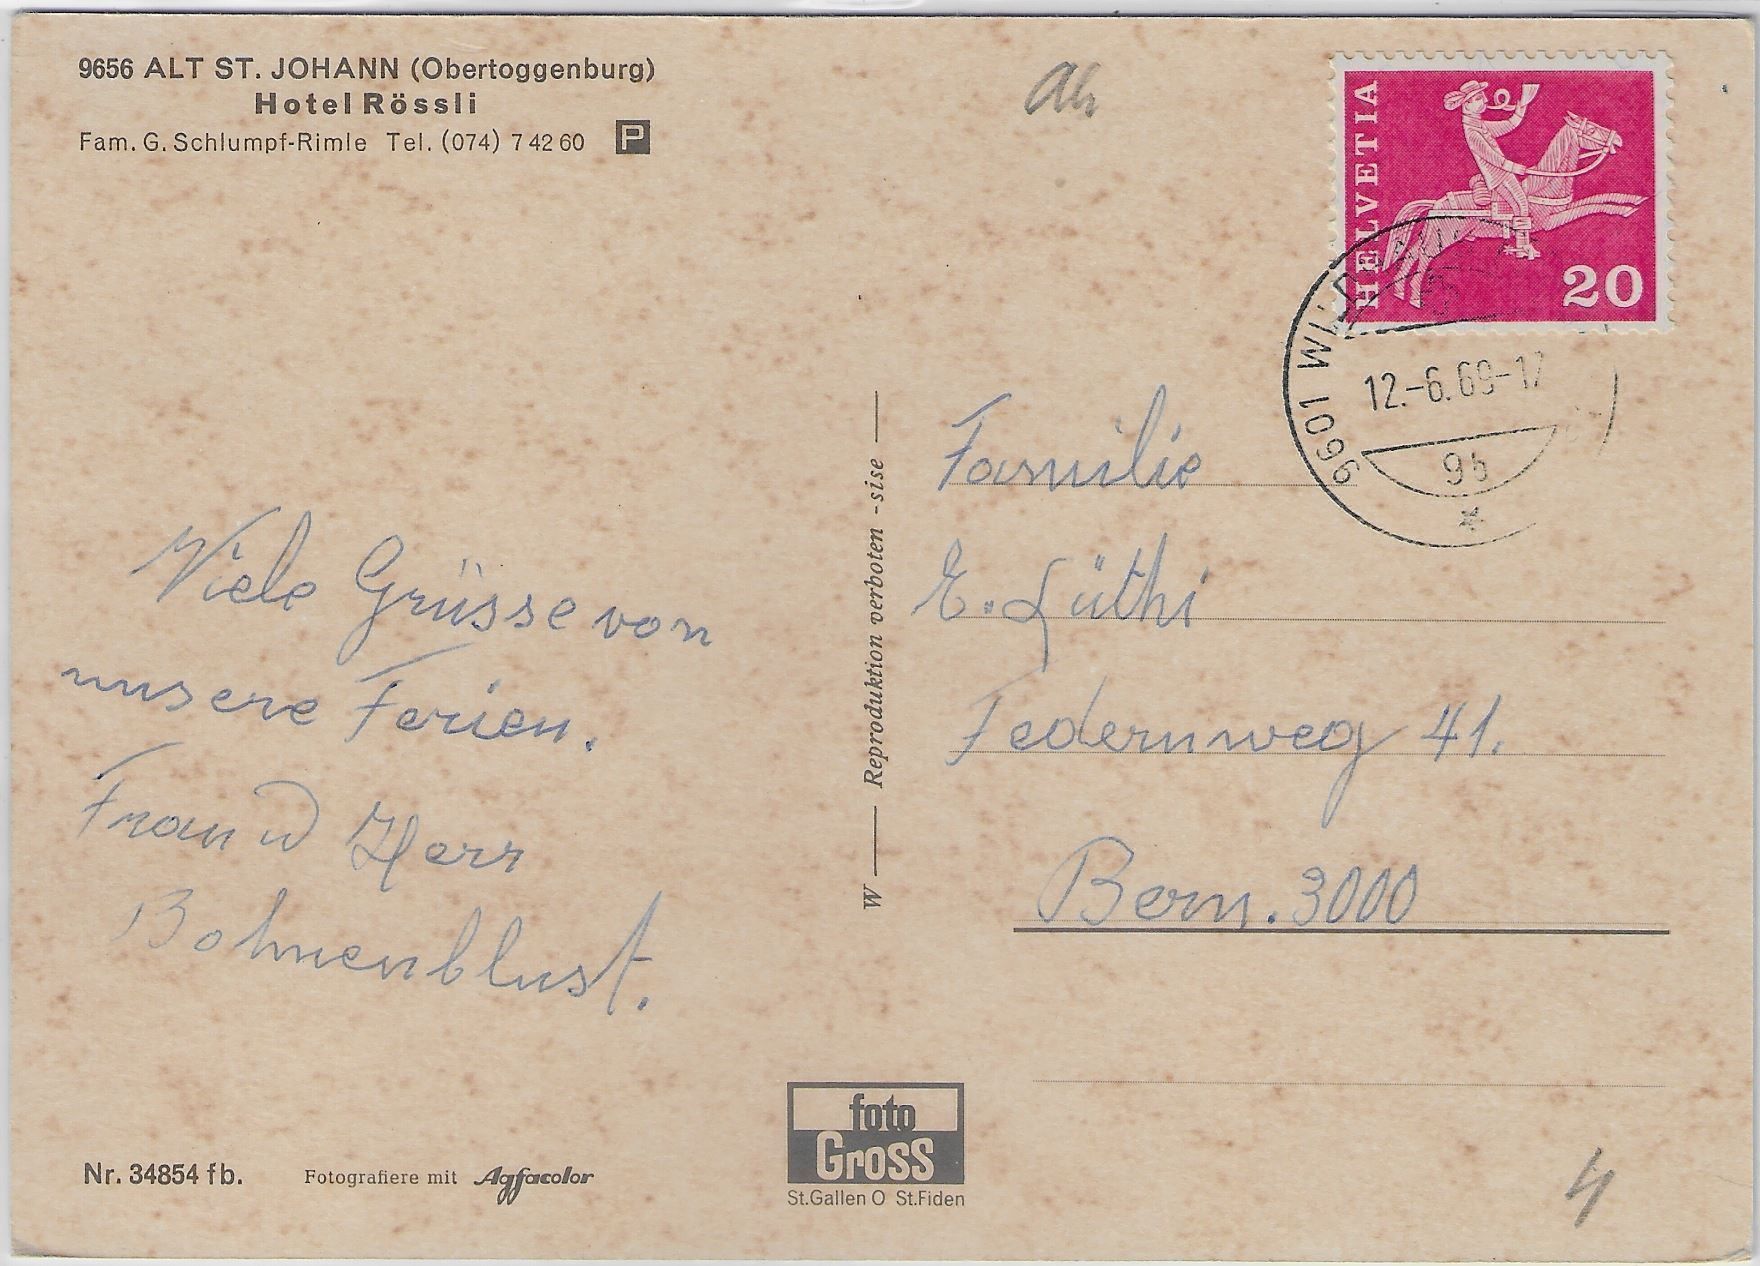 9656 ALT ST. JOHANN (Obertoggenburg)
Hotel Rössli
Fam. G. Schlumpf-Rimle Tel. (074) 7 42 60 P
HELVETIA
20
9601
12.-6.69-17
9b
Viele Grüsse von
unsere Ferien.
Frau u Herr
Bohnenblust.
W — Reproduktion verboten - sise —
Familie
E. Lüthi
Federnweg 41.
Bern. 3000
Nr. 34854 fb.
Fotografiere mit Agfacolor
foto
Gross
St.Gallen O St.Fiden
4